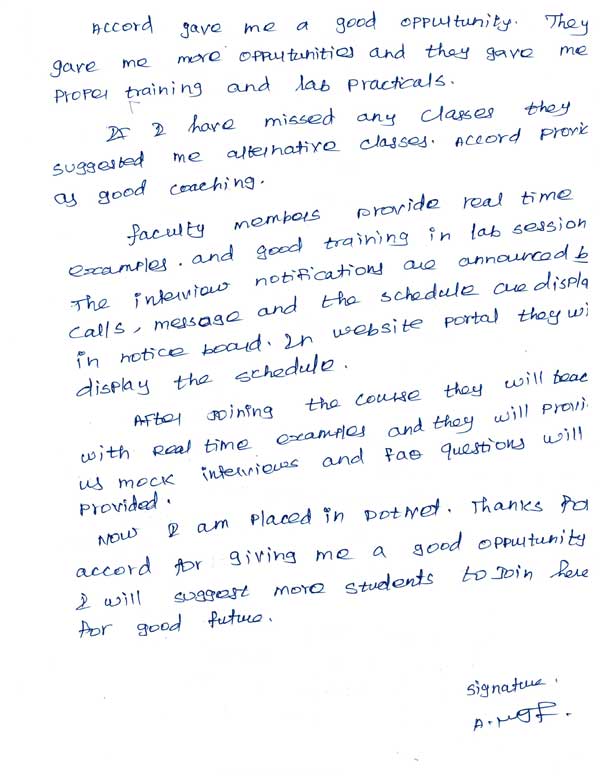 Accord gave me a good oppurtunity. They
gave me more oppurtunities and they gave me
proper training and lab practicals.
If I have missed any classes they
suggested me alternative classes. Accord provid
as good coaching.
faculty members provide real time
examples. and good training in lab session
The interview notifications are announced b
calls, message and the schedule are displa
in notice board. In website portal they wi
display the schedule.
After joining the course they will teac
with real time examples and they will provi
us mock interviews and faq questions will
provided.
Now I am placed in DotNet. Thanks for
accord for giving me a good oppurtunity
I will suggest more students to Join here
for good future.
signature.